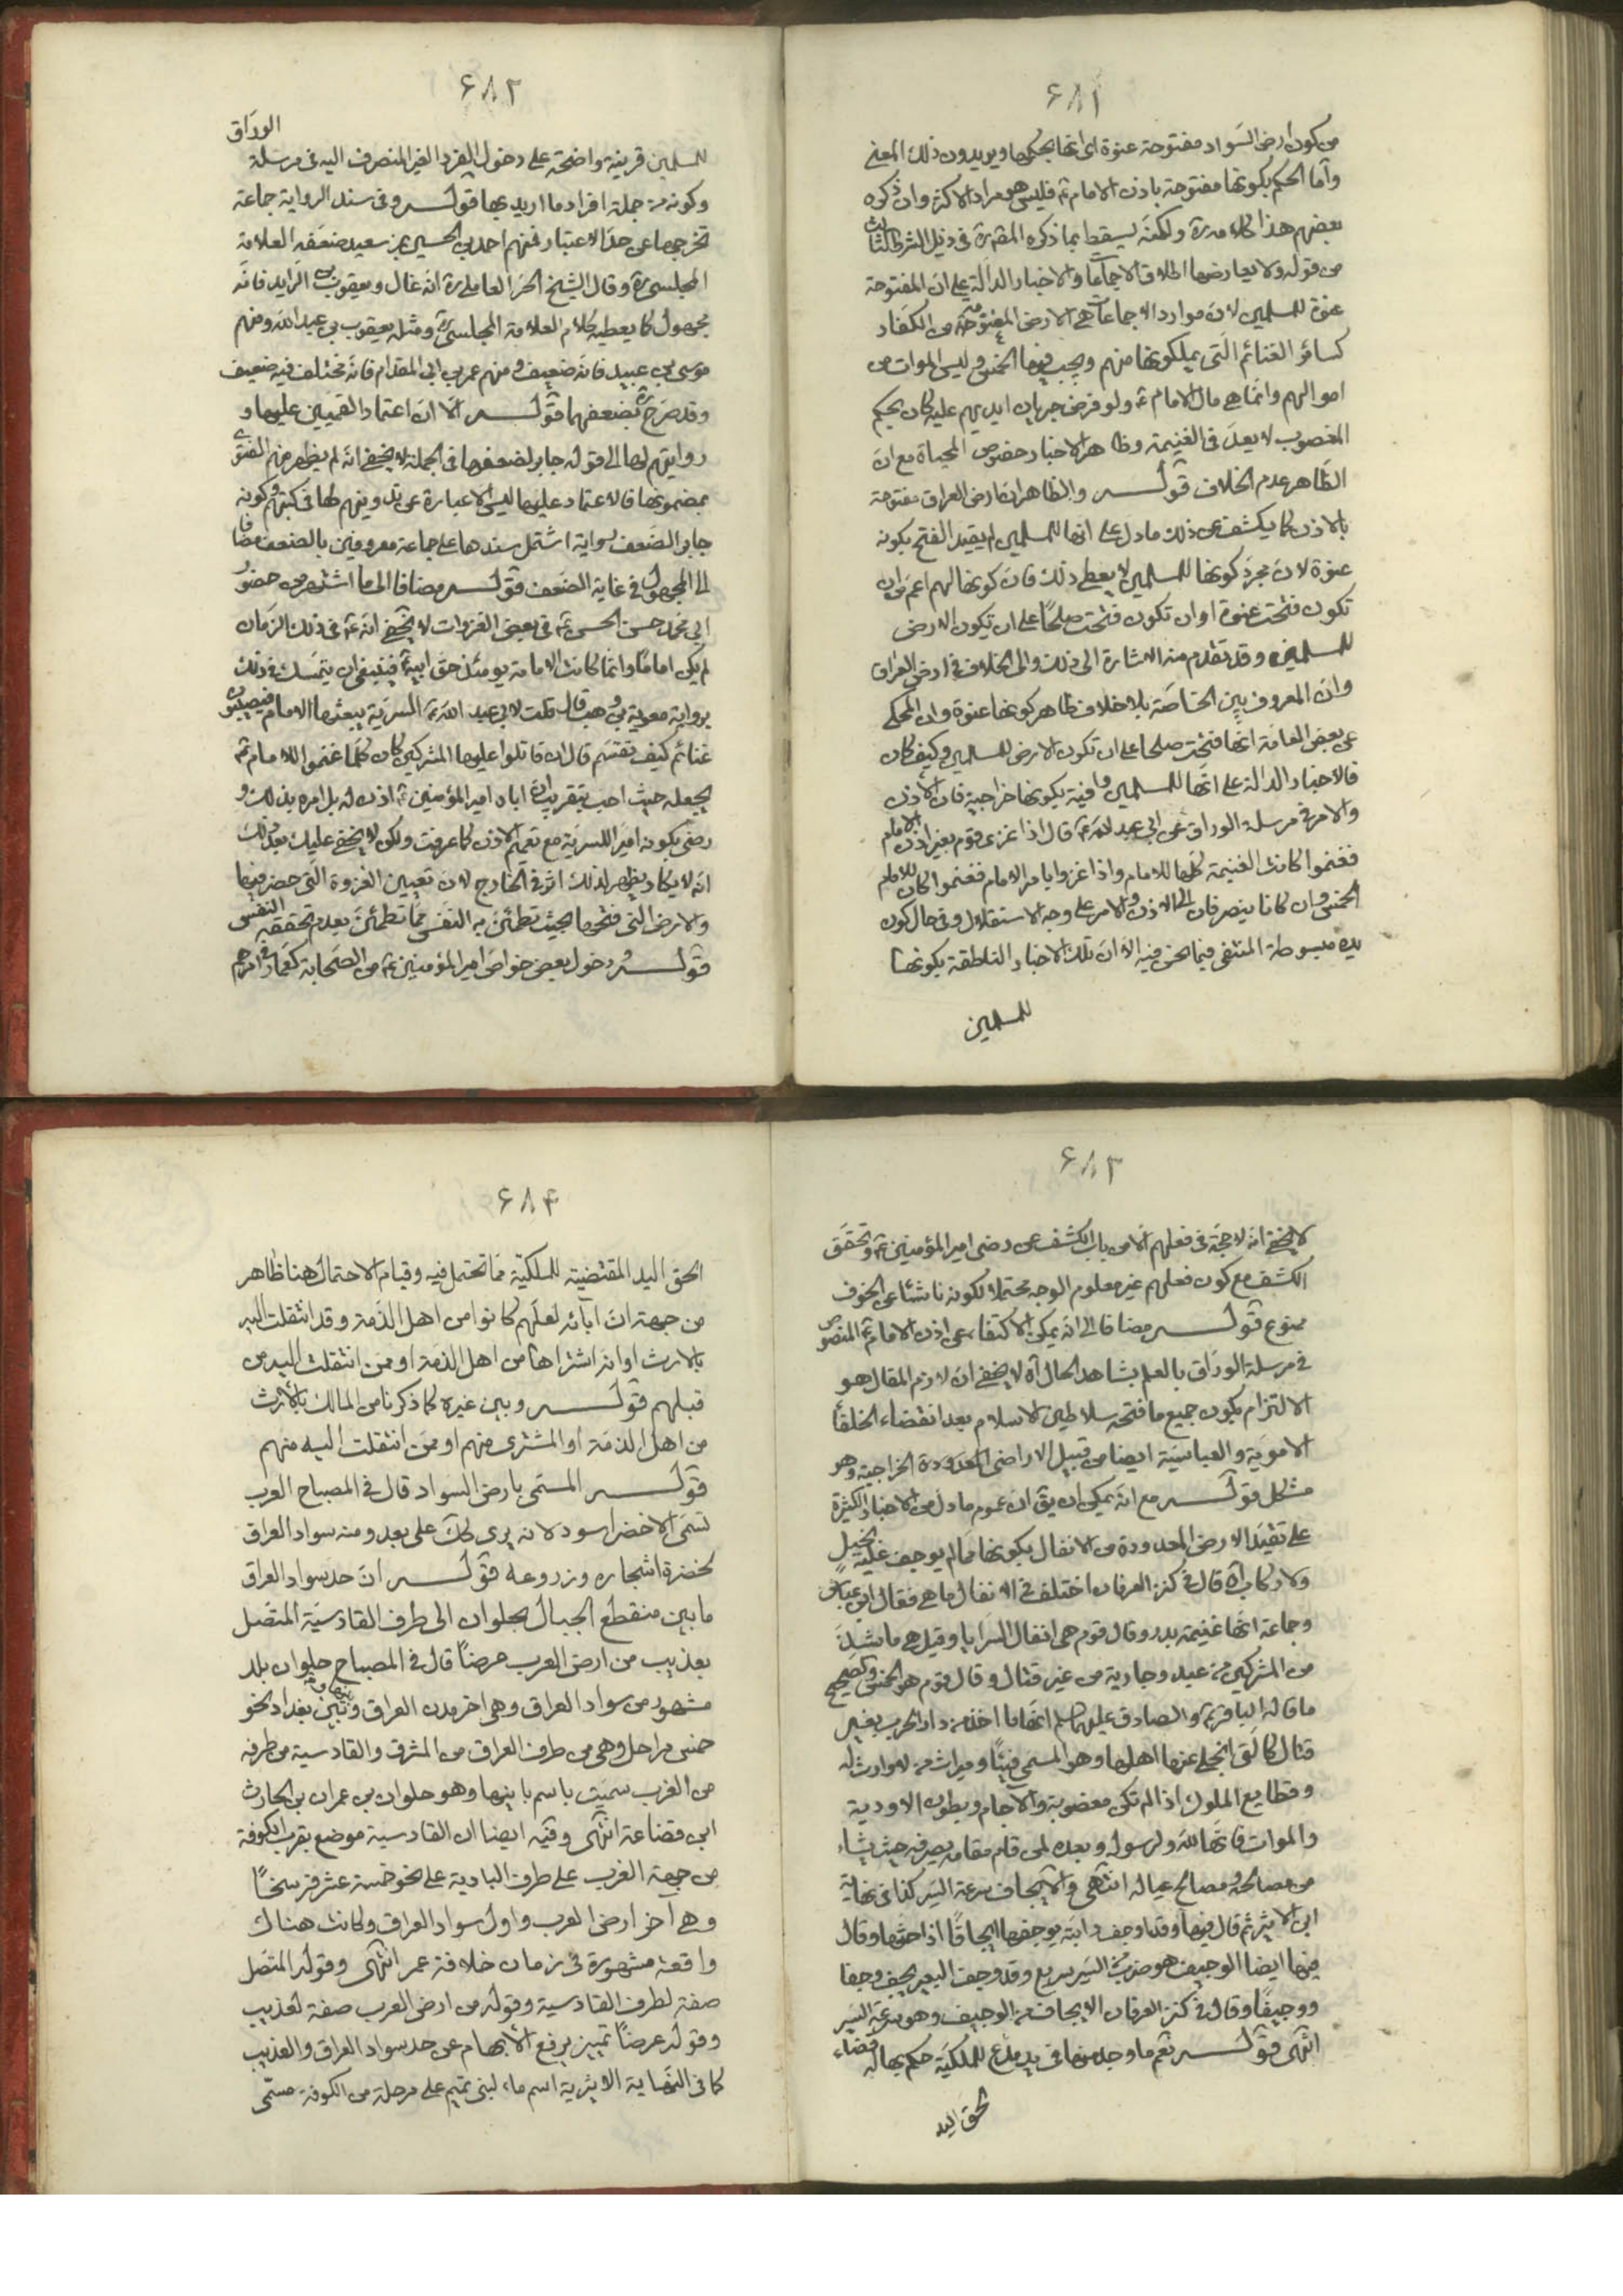 ۶۸۱
من كون ارض السواد مفتوحة عنوة اى انها بحكمها ويريدون ذلك المعنى
وأما الحكم بكونها مفتوحة باذن الامام ع فليس هو مراد الاكثر وان ذكره
بعضهم هذا كلامه ره ولكنه يسقط بما ذكره المقرره فى ذيل الشرط الثالث
من قوله ولا يعارضها اطلاق الاجماعات والاخبار الدالة على ان المفتوحة
عنوة للمسلمين لان موارد الاجماعات هى الارض المفتوحة من الكفار
كسائر الغنائم التى يملكونها منهم ويجب فيها الخمس وليس الموات من
اموالهم وانما هى مال الامام ع ولو فرض جريان ايديهم عليه كان بحكم
المغصوب لا يعد فى الغنيمة وظاهر الاخبار خصوص المحياة مع ان
الظاهر عدم الخلاف قولـــه والظاهر ان ارض العراق مفتوحة
بالاذن كما يكشف عن ذلك ما دل على انها للمسلمين لم يقيد الفتح بكونه
عنوة لان مجرد كونها للمسلمين لا يعطى ذلك فان كونها لهم اعم من ان
تكون فتحت عنوة او ان تكون فتحت صلحًا على ان تكون الارض
للمسلمين وقد تقدم منه الاشارة الى ذلك والى الخلاف فى ارض العراق
وان المعروف بين الخاصة بلا خلاف ظاهر كونها عنوة وان المحكى
عن بعض العامة انها فتحت صلحا على ان تكون الارض للمسلمين وكيف كان
فالاخبار الدالة على انها للمسلمين وافية بكونها خراجية فان الاذن
والامر فى مرسلة الوراق عن ابى عبد الله ع قال اذا غزى قوم بغير اذن الامام
فغنموا كانت الغنيمة كلها للامام واذا غزوا بامر الامام فغنموا كان للامام
الخمس وان كانا ينصرفان الى الاذن والامر على وجه الاستقلال وفى حال كون
يده مبسوطة المنتفى فيما نحن فيه الا ان تلك الاخبار الناطقة بكونها
للمسلمين
۶۸۲
الوراق
للمسلمين قرينة واضحة على دخول الفرد الغير المنصرف اليه فى مرسلة
وكونه من جملة افراد ما اريد بها قولـــه وفى سند الرواية جماعة
تخرجها عن حد الاعتبار فمنهم احمد بن الحسين بن سعيد ضعفه العلامة
المجلسى ره وقال الشيخ الحر العاملى ره انه غال ويعقوب بن الرايد فانه
مجهول كما يعطيه كلام العلامة المجلسى ره ومثله يعقوب بن عبد الله ومنهم
موسى بن عبيد فانه ضعيف ومنهم عمر بن ابى المقدام فانه مختلف فيه ضعيف
وقد صرح ره بضعفهما قولـــه الا ان اعتماد القميين عليها و
روايتهم لها الى قوله جابر لضعفها فى الجملة لا يخفى انه لم يظهر منهم الفتوى
بمضمونها فالاعتماد عليها ليس الا عبارة عن تدوينهم لها فى كتبهم وكونه
جابر الضعف لرواية اشتمل سندها على جماعة معروفين بالضعف مضافا
الى المجهول فى غاية الضعف قولـــه مضافا الى ما اشتهر من حضور
ابى محمد حسن الحسن ع فى بعض الغزوات لا يخفى انه ع فى ذلك الزمان
لم يكن امامًا وانما كانت الامامة يومئذ حق ابيه ع فينبغى ان يتمسك فى ذلك
برواية معوية بن وهب قال قلت لابى عبد الله ع السرية يبعثها الامام فيصيبون
غنائم كيف تقسم قال ان قاتلوا عليها المشركين كان كلما غنموا للامام ع
يجعله حيث احب بتقريب ان اباه امير المؤمنين ع اذن له بل امره بذلك و
رضى بكونه اميرا للسرية مع تعميم الاذن كما عرفت ولكن لا يخفى عليك بعد ذلك
انه لا يكاد يظهر لذلك اثر فى الخارج لان تعيين الغزوة التى حضر فيها
والارض التى فتحها بحيث تطمئن به النفس مما تطمئن بعدم تحققه النفس
قولـــه ودخول بعض خواص امير المؤمنين ع من الصحابة كعمار فى امرهم
۶۸۳
لا يخفى انه لا حجة فى فعلهم الا من باب الكشف عن رضى امير المؤمنين ع وتحقق
الكشف مع كون فعلهم غير معلوم الوجه محتملا لكونه ناشئا عن الخوف
ممنوع قولـــه مضافا الى انه يمكن الاكتفاء عن اذن الامام ع المنصوص
فى مرسلة الوراق بالعلم بشاهد الحال آه لا يخفى ان لازم المقال هو
الالتزام بكون جميع ما فتحه سلاطين الاسلام بعد انقضاء الخلفاء
الاموية والعباسية ايضا من قبيل الاراضى المعدودة الخراجية وهو
مشكل قولـــه مع انه يمكن ان يق ان عموم ما دل من الاخبار الكثيرة
على تقييد الارض المعدودة من الانفال بكونها مما لم يوجف عليه بخيل
ولا ركاب آه قال فى كنز العرفان اختلف فى الانفال ما هى فقال ابن عباس
وجماعة انها غنيمة بدر وقال قوم هى انفال السرايا وقيل هى ما شذ
من المشركين من عبد وجارية من غير قتال وقال قوم هو الخمس والصحيح
ما قاله الباقر ع والصادق عليهما السلم انها ما اخذ من دار الحرب بغير
قتال كالتى انجلى عنها اهلها وهو المسمى فيئًا وميراث من لا وارث له
وقطايع الملوك اذا لم تكن مغصوبة والآجام وبطون الاودية
والموات فانها لله ولرسوله وبعده لمن قام مقامه يصرفه حيث يشاء
من مصالحه ومصالح عياله انتهى والايجاف سرعة السير كذا فى نهاية
ابن الاثير ثم قال فيها وقد اوجف دابته يوجفها ايجافًا اذا حثها وقال
فيها ايضا الوجيف هو ضرب السير سريع وقد وجف البعير يجف وجفا
ووجيفًا وقال فى كنز العرفان الايجاف من الوجيف وهو سرعة السير
انتهى قولـــه نعم ما وجد منها فى يد مدع للملكية حكم بها له قضاء
لحق اليد
۶۸۴
الحق اليد المقتضية للملكية فما تحتمل فيه وقيام الاحتمال هنا ظاهر
من جهة ان آبائه لعلهم كانوا من اهل الذمة وقد انتقلت اليه
بالارث او انه اشتراها من اهل الذمة او ممن انتقلت اليه من
قبلهم قولـــه وبين غيره كما ذكرنا من المالك بالارث
من اهل الذمة او المشترى منهم او ممن انتقلت اليه منهم
قولـــه المسمى بارض السواد قال فى المصباح العرب
تسمى الاخضر اسود لانه يرى كك على بعد ومنه سواد العراق
لخضرة اشجاره وزروعه قولـــه ان حد سواد العراق
ما بين منقطع الجبال بحلوان الى طرف القادسية المتصل
بعذيب من ارض العرب عرضًا قال فى المصباح حلوان بلد
مشهور من سواد العراق وهى اخر مدن العراق وبينها وبين بغداد نحو
خمس مراحل وهى من طرف العراق من المشرق والقادسية من طرفه
من الغرب سميت باسم بانيها وهو حلوان بن عمران بن الحارث
ابن قضاعة انتهى وفيه ايضا ان القادسية موضع بقرب الكوفة
من جهة الغرب على طرف البادية على نحو خمسة عشر فرسخًا
وهى آخر ارض العرب واول سواد العراق وكانت هناك
واقعة مشهورة فى زمان خلافة عمر انتهى وقوله المتصل
صفة لطرف القادسية وقوله من ارض العرب صفة لعذيب
وقوله عرضًا تمييز يرفع الابهام عن حد سواد العراق والعذيب
كما فى النهاية الاثيرية اسم ماء لبنى تميم على مرحلة من الكوفة مسمى